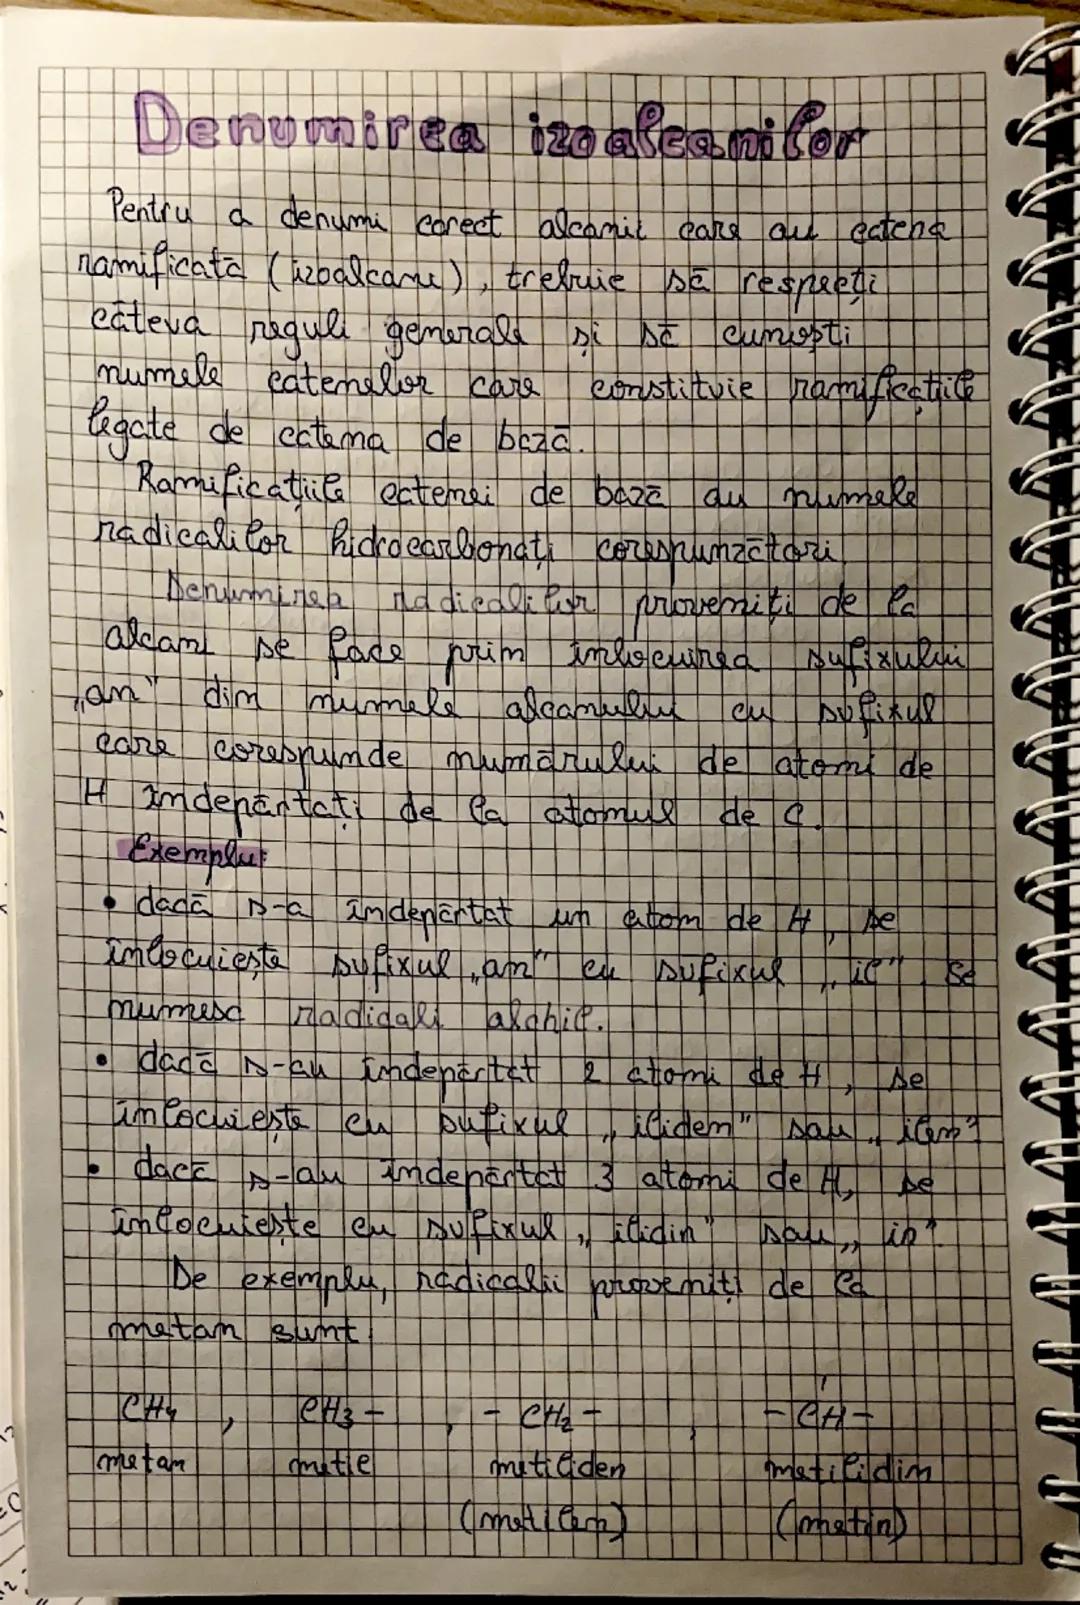 Denumirea izoalcanilor
Pentru a denumi corect alcanii care au catena
ramificată (izoalcani), trebuie să respecți
câteva reguli generale și să cunoști
numele catenelor care constituie ramificațiile
legate de catena de bază.
Ramificațiile catenei de bază au numele
radicalilor hidrocarbonați corespunzători
Denumirea radicalilor proveniți de la
alcani se face prin înlocuirea sufixului
„an" din numele alcanului cu sufixul
care corespunde numărului de atomi de
H îndepărtați de la atomul de C.
Exemplu:
• dacă s-a îndepărtat un atom de H, se
înlocuiește sufixul „an" cu sufixul „il" se
numesc radicali alchil.
• dacă s-au îndepărtat 2 atomi de H, se
înlocuiește cu sufixul „iliden" sau „ilen"
• dacă s-au îndepărtat 3 atomi de H, se
înlocuiește cu sufixul „ilidin" sau „in"
De exemplu, radicalii proveniți de la
metan sunt:
CH4, CH3 -, - CH2 -, - CH -
metan metil metiliden metilidin
(metilen) (metin)